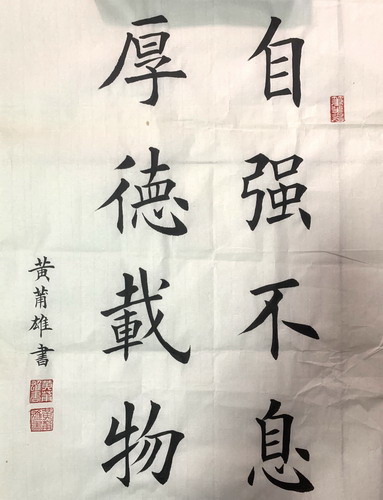 自强不息
厚德載物
黃莆雄書